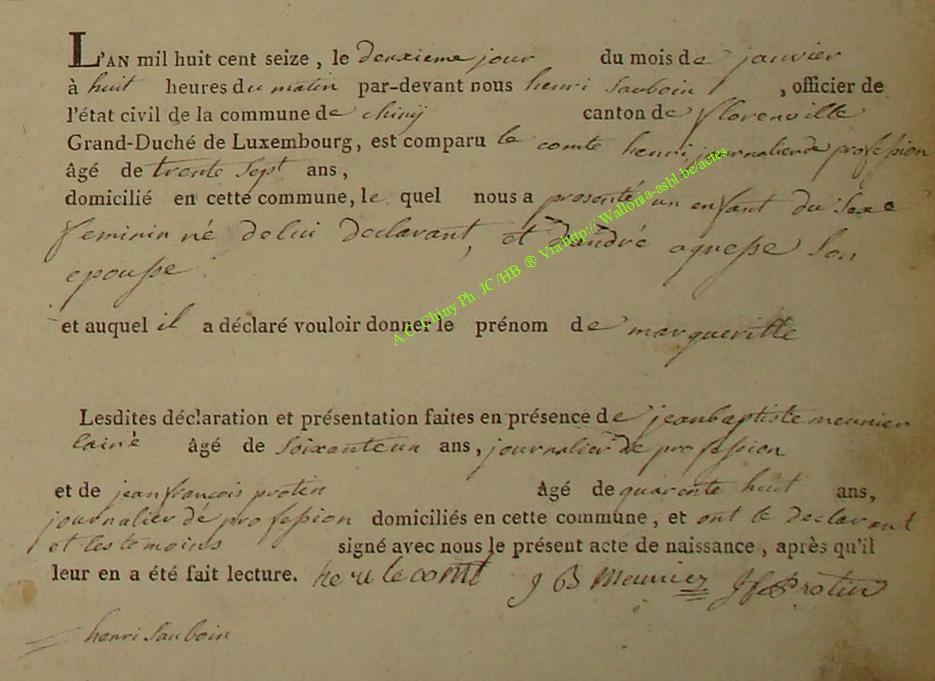 L'AN mil huit cent seize, le deuxieme jour du mois de janvier
à huit heures du matin par-devant nous henri Sauboin, officier de
l'état civil de la commune de chiny canton de florenville
Grand-Duché de Luxembourg, est comparu le comte henri journalier de profession
âgé de trente Sept ans,
domicilié en cette commune, le quel nous a presenté un enfant du Sexe
feminin né de lui declarant, et d'andré agnesse Son
epousse
et auquel il a déclaré vouloir donner le prénom de margueritte
Lesdites déclaration et présentation faites en présence de jeanbaptiste meunier
lainé âgé de Soixanteun ans, journalier de profession
et de jeanfrançois protin âgé de quarente huit ans,
journalier de profession domiciliés en cette commune, et ont le declarant
et les temoins signé avec nous le présent acte de naissance, après qu'il
leur en a été fait lecture. henri lecomt J B Meunier J f Protin
henri Sauboin
A.C. Chiny Ph. JC/HB ® Via http://Wallonia-asbl.be/actes